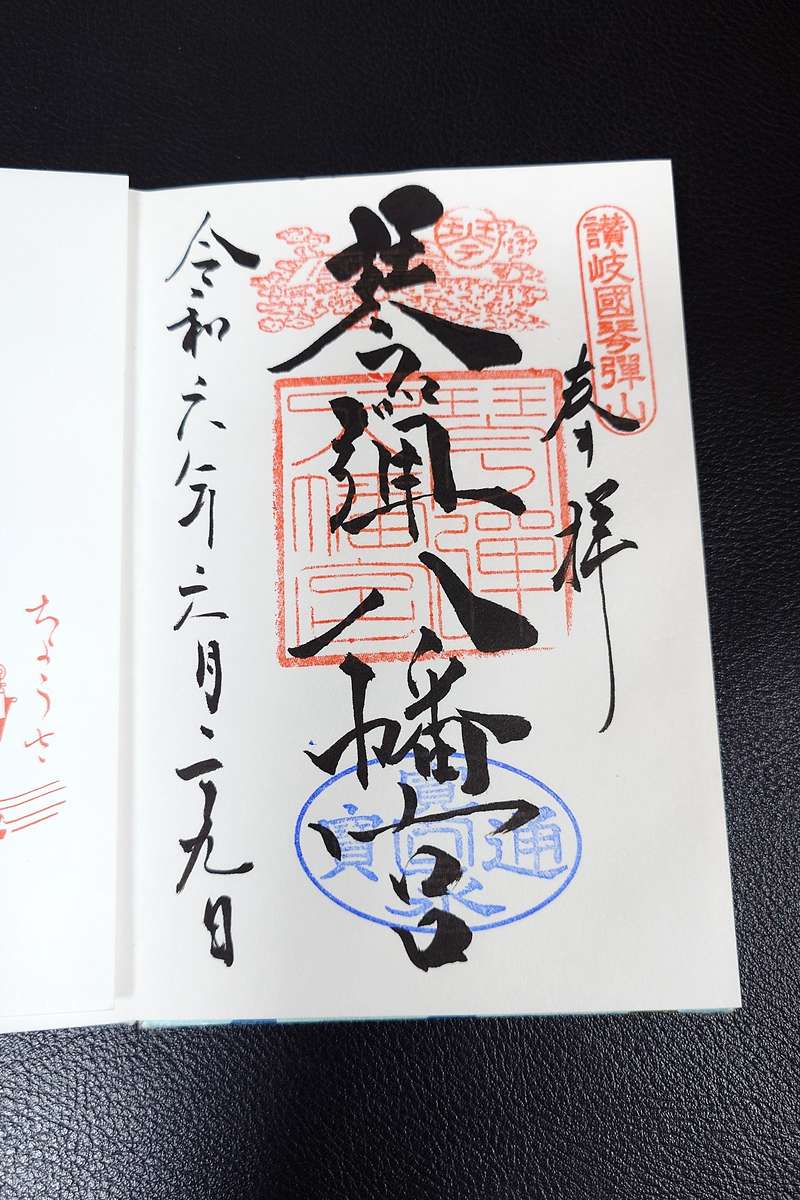 讃岐國琴彈山
奉拝
琴
琴弾八幡宮
琴彈八幡宮
寛永通寳
令和六年六月二十九日
ちょうさ